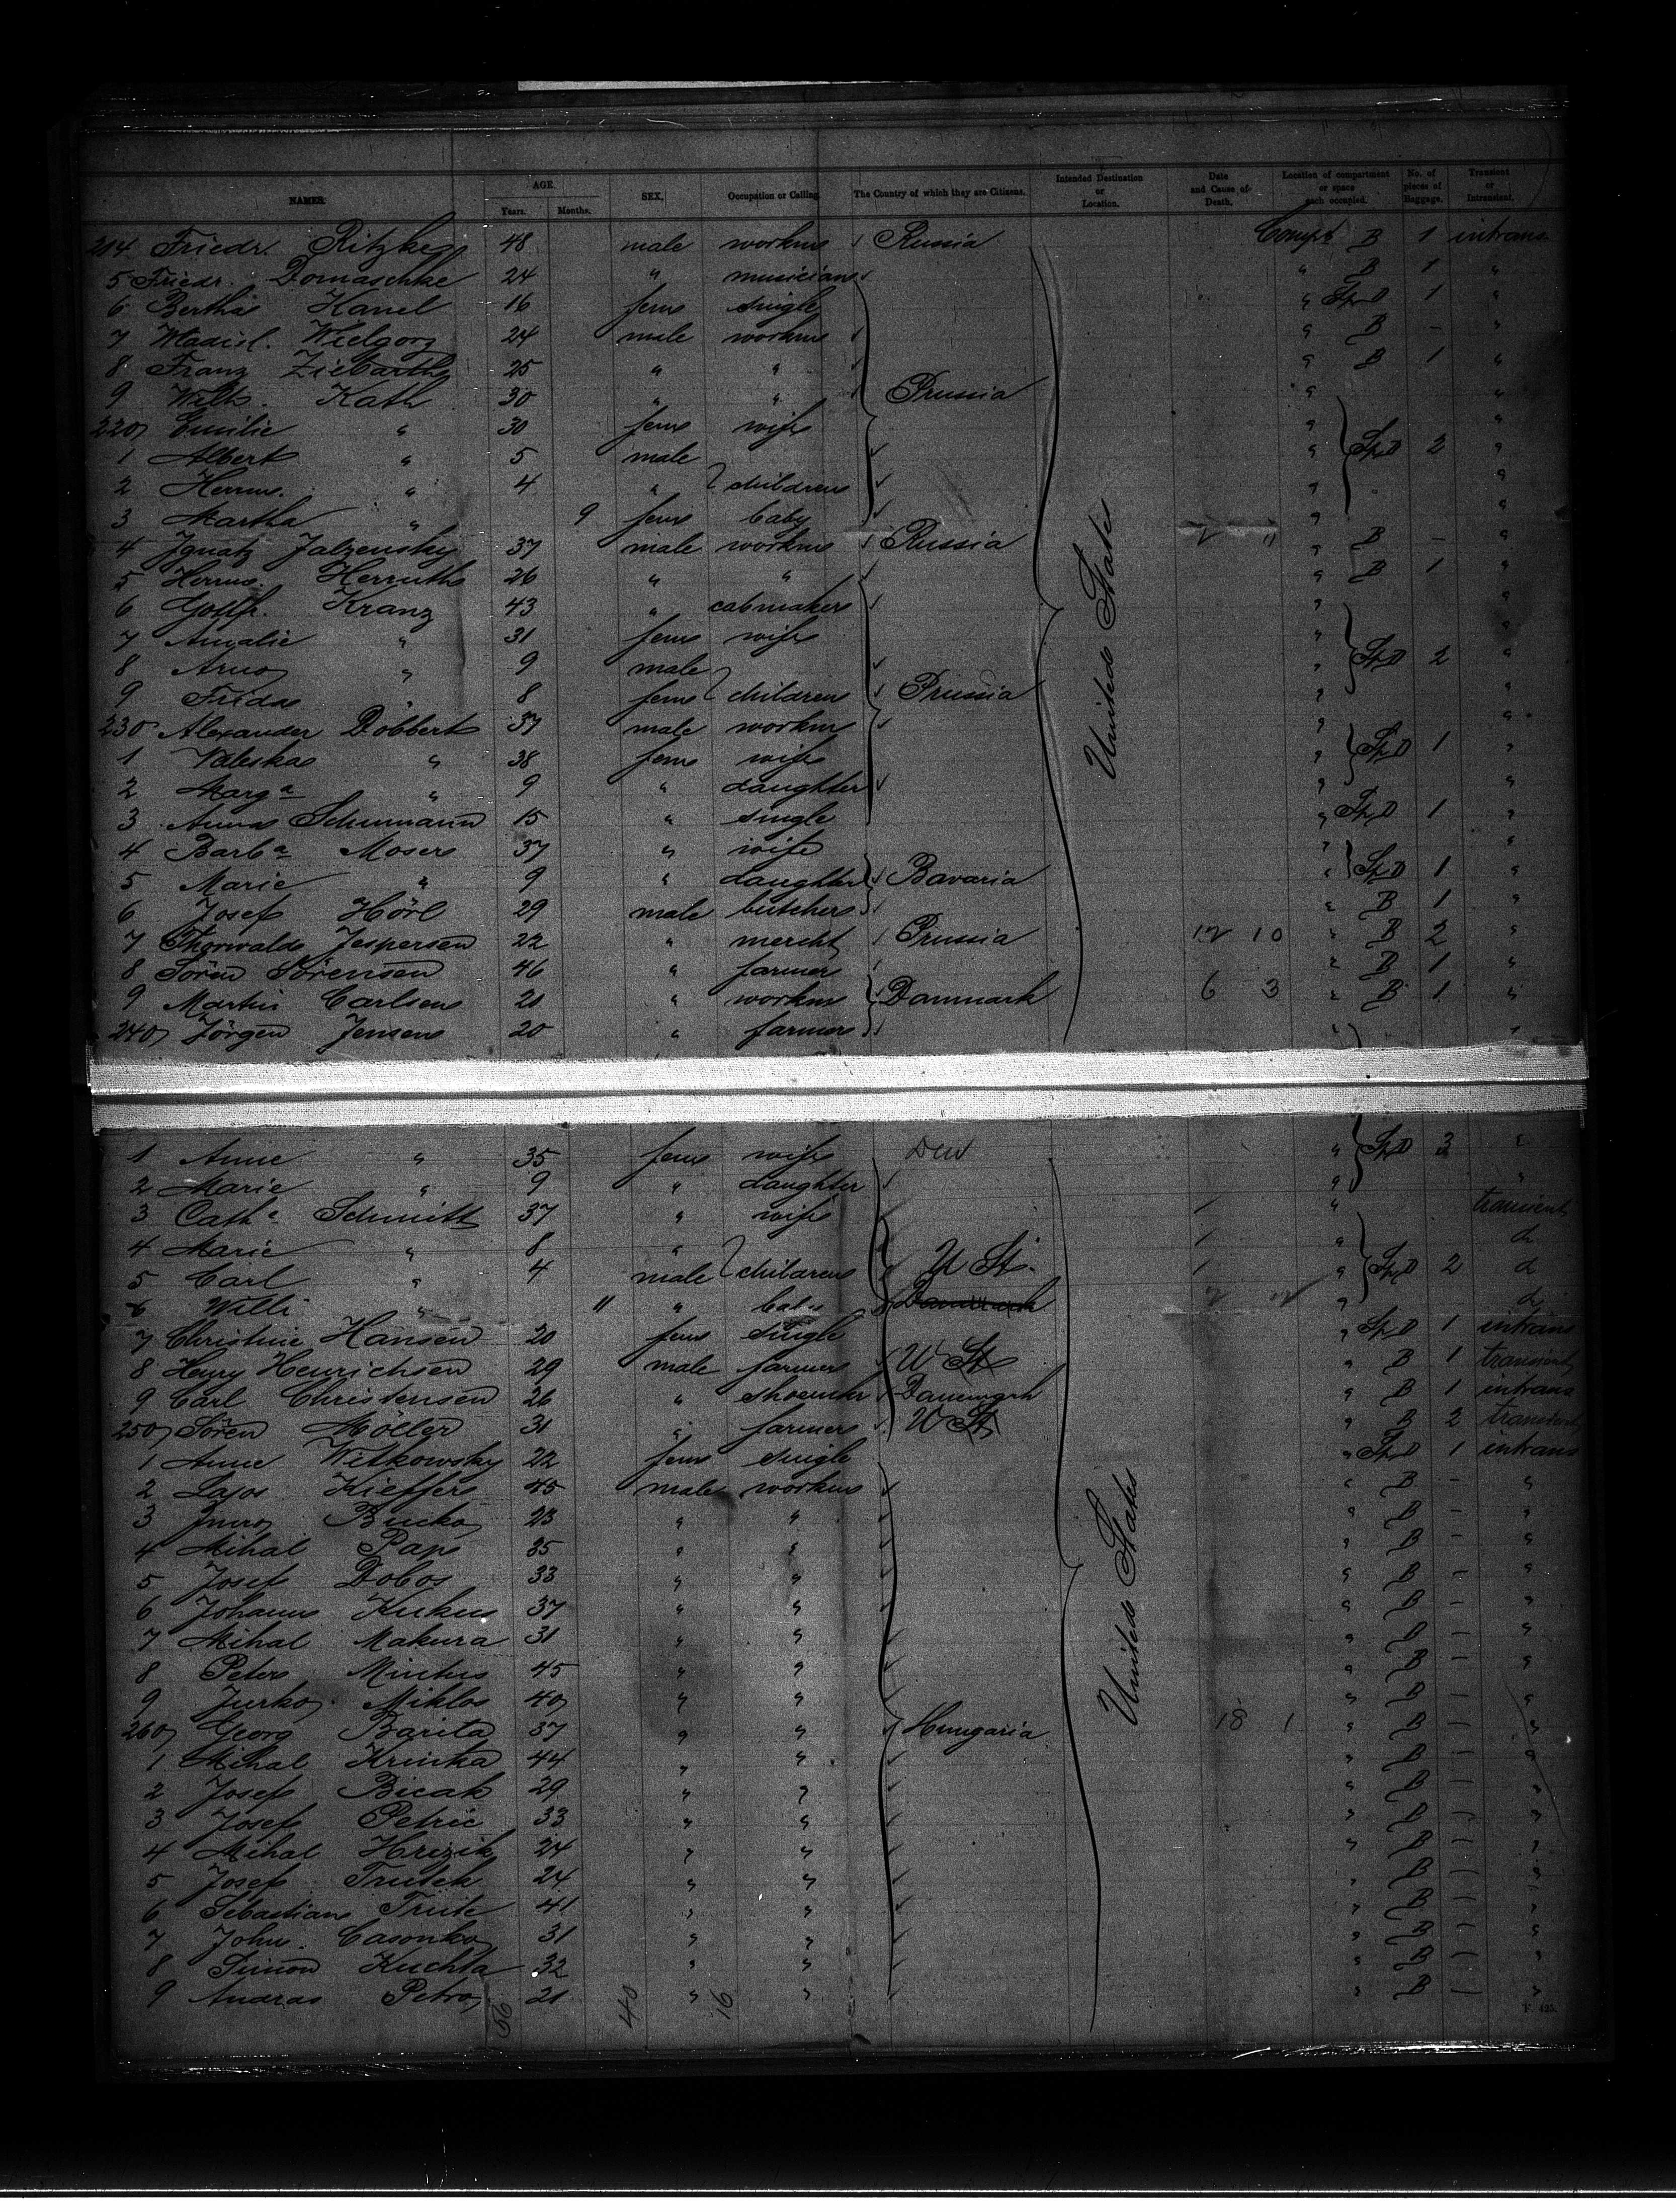 NAMES. AGE. Years. Months. SEX. Occupation or Calling. The Country of which they are Citizens. Intended Destination or Location. Date and Cause of Death. Location of compartment or space each occupied. No. of pieces of Baggage. Transient or Intransient.
214 Friedr. Ritzke 48 male workm Russia Compt B 1 intrans
5 Friedr. Domaschke 24 " musician " B 1 "
6 Bertha Hanel 16 fem single " Sp D 1 "
7 Wladisl. Wielgorz 24 male workm " B - "
8 Franz Ziebarth 25 " " " B 1 "
9 Wilh. Kath 30 " " Prussia " "
220 Emilie " 30 fem wife " "
1 Albert " 5 male " Sp D 2 "
2 Herm. " 4 " children " "
3 Martha " 9 fem baby " "
4 Ignatz Jalzensky 37 male workm Russia " B - "
5 Herm. Herruth 26 " " " B 1 "
6 Gottfr. Kranz 43 " cabmaker " "
7 Amalie " 31 fem wife " "
8 Arno " 9 male " Sp D 2 "
9 Frida " 8 fem children Prussia " "
230 Alexander Dobbert 37 male workm " "
1 Valeska " 38 fem wife " Sp D 1 "
2 Marga " 9 " daughter " "
3 Anna Schumann 15 " single " Sp D 1 "
4 Barba Moser 37 " wife " "
5 Marie " 9 " daughter Bavaria " Sp D 1 "
6 Josef Hörl 29 male butcher " B 1 "
7 Thorwald Jespersen 22 " mercht Prussia 12 10 " B 2 "
8 Sören Sörensen 46 " farmer " B 1 "
9 Martin Carlsen 21 " workm Danmark 6 3 " B 1 "
240 Jörgen Jensen 20 " farmer " "
United States
1 Anne " 35 fem wife " Sp D 3 "
2 Marie " 9 " daughter " "
3 Cathe Schmitt 37 " wife " transient
4 Marie " 8 " " d
5 Carl " 4 male children U St. " Sp D 2 d
6 Willi " 11 " Danmark " d
7 Christine Hansen 20 fem single " Sp D 1 intrans
8 Henry Henrichsen 29 male farmer U St " B 1 transient
9 Carl Christensen 26 " shoemker Danmark " B 1 intrans
250 Sören Möller 31 " farmer U St " B 2 transient
1 Anne Witkowsky 22 fem single " Sp D 1 intrans
2 Lajos Kieffer 45 male workm " B - "
3 Bucko 23 " " " B - "
4 Mihal Pap 35 " " " B - "
5 Josef Dobos 33 " " " B - "
6 Johann Kukus 37 " " " B - "
7 Mihal Makura 31 " " " B - "
8 Peter Mintus 45 " " " B - "
9 Jurko Miklos 40 " " " B - "
260 Georg Barita 37 " " Hungaria 18 1 " B - "
1 Mihal Krinka 44 " " " B - "
2 Josef Bicak 29 " " " B - "
3 Josef Petric 33 " " " B - "
4 Mihal Hrizik 24 " " " B - "
5 Josef 24 " " " B - "
6 Sebastian 41 " " " B - "
7 John Casonko 31 " " " B - "
8 Simon Kuchta 32 " " " B - "
9 Andras Petro 21 " " " B - "
United States
56 40 16
F. 425.